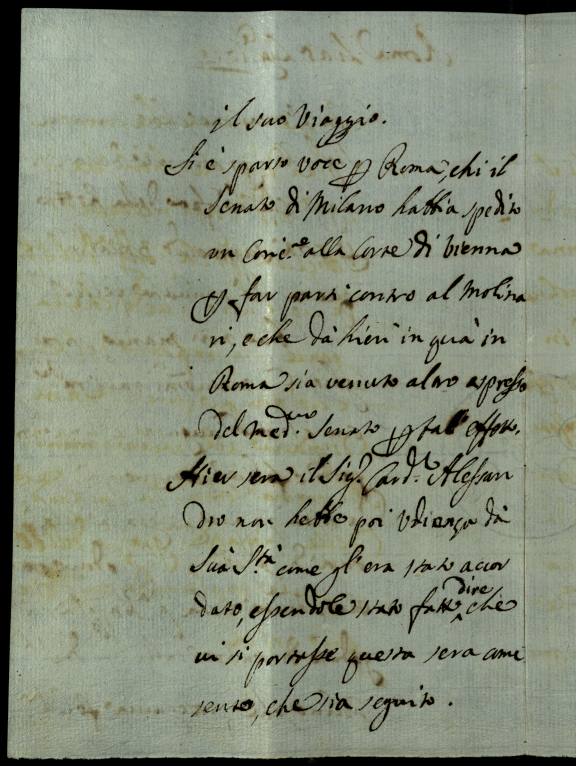 il suo Viaggio.
Si è sparso voce p Roma, chi il
Senato di Milano habbia spedito
un Corie.re alla Corte di Vienna
p far parti contro al Molina
ri, e che dà hieri in quà in
Roma sia venuto altro espresso
del med.mo Senato p tal' effetto.
Hier sera il Sig.r Card.l Alessan
dro non hebbe poi Vdienza dà
Suà S.tà come gl'era stato accor
dato, essendole stato fatto dire che
vi si portasse questa sera come
sento, che sia seguito.